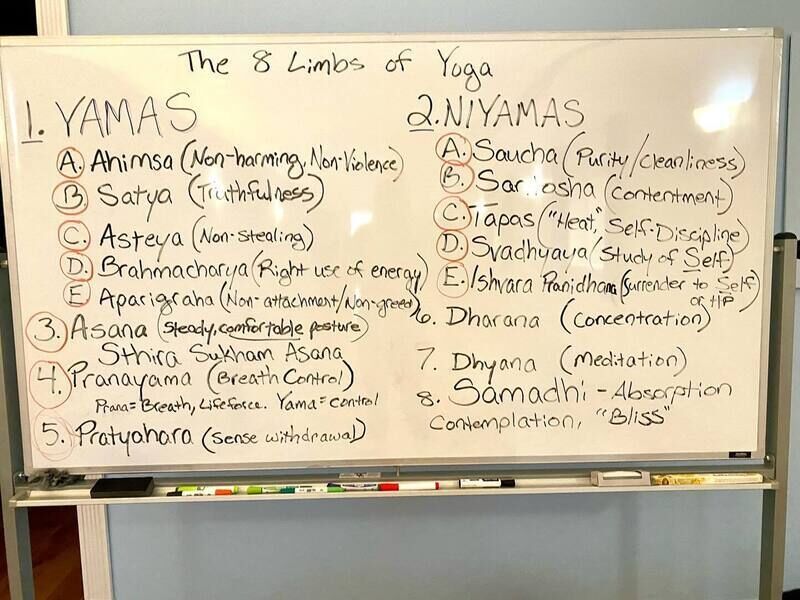 The 8 Limbs of Yoga
1. YAMAS
A. Ahimsa (Non-harming, Non-Violence)
B. Satya (Truthfulness)
C. Asteya (Non-stealing)
D. Brahmacharya (Right use of energy)
E. Aparigraha (Non-attachment/Non-greed)
3. Asana (steady, comfortable posture)
Sthira Sukham Asana
4. Pranayama (Breath Control)
Prana = Breath, Lifeforce. Yama = control
5. Pratyahara (sense withdrawal)
2. NIYAMAS
A. Saucha (Purity/Cleanliness)
B. Santosha (Contentment)
C. Tapas ("Heat," Self-Discipline)
D. Svadhyaya (study of Self)
E. Ishvara Pranidhana (surrender to Self
or HP)
6. Dharana (Concentration)
7. Dhyana (Meditation)
8. Samadhi - Absorption
Contemplation, "Bliss"